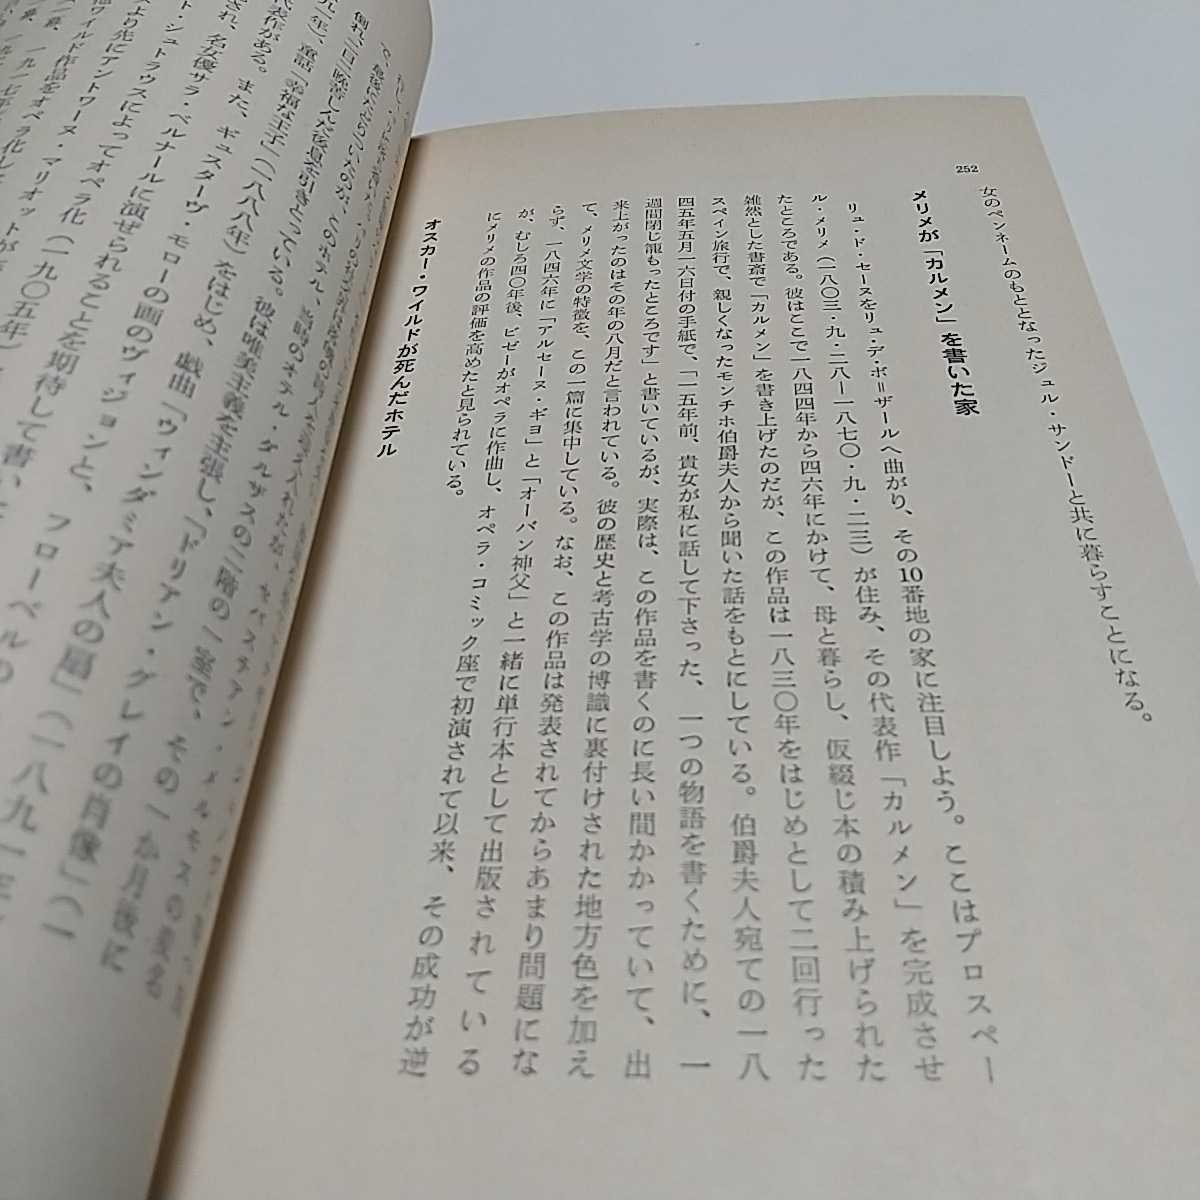 252
女のペンネームのもととなったジュル・サンドーと共に暮らすことになる。
メリメが「カルメン」を書いた家
リュ・ド・セースをリュ・デ・ボ＝ザールへ曲がり、その10番地の家に注目しよう。ここはプロスペー
ル・メリメ（一八〇三・九・二八―一八七〇・九・二三）が住み、その代表作「カルメン」を完成させ
たところである。彼はここで一八四四年から四六年にかけて、母と暮らし、仮綴じ本の積み上げられた
雑然とした書斎で「カルメン」を書き上げたのだが、この作品は一八三〇年をはじめとして二回行った
スペイン旅行で、親しくなったモンチホ伯爵夫人から聞いた話をもとにしている。伯爵夫人宛ての一八
四五年五月一六日付の手紙で、「一五年前、貴女が私に話して下さった、一つの物語を書くために、一
週間閉じ籠もったところです」と書いているが、実際は、この作品を書くのに長い間かかっていて、出
来上がったのはその年の八月だと言われている。彼の歴史と考古学の博識に裏付けされた地方色を加え
て、メリメ文学の特徴を、この一篇に集中している。なお、この作品は発表されてからあまり問題にな
らず、一八四六年に「アルセーヌ・ギョ」と「オーバン神父」と一緒に単行本として出版されている
が、むしろ四〇年後、ビゼーがオペラに作曲し、オペラ・コミック座で初演されて以来、その成功が逆
にメリメの作品の評価を高めたと見られている。
オスカー・ワイルドが死んだホテル
倒れ、二日二晩苦しんだ後息を引きとっている。彼は唯美主義を主張し、「ドリアン・グレイの肖像」（一
九一年）、童話「幸福な王子」（一八八八年）をはじめ、戯曲「ウィンダミア夫人の扇」（一八九一年
代表作がある。また、ギュスターヴ・モローの画のヴィジョンと、フローベルの
され、名女優サラ・ベルナールに演ぜられることを期待して書いた
ト・シュトラウスによってオペラ化（一九〇五年）
より先にアントワーヌ・マリオットが
ワイルド作品をオペラ化して